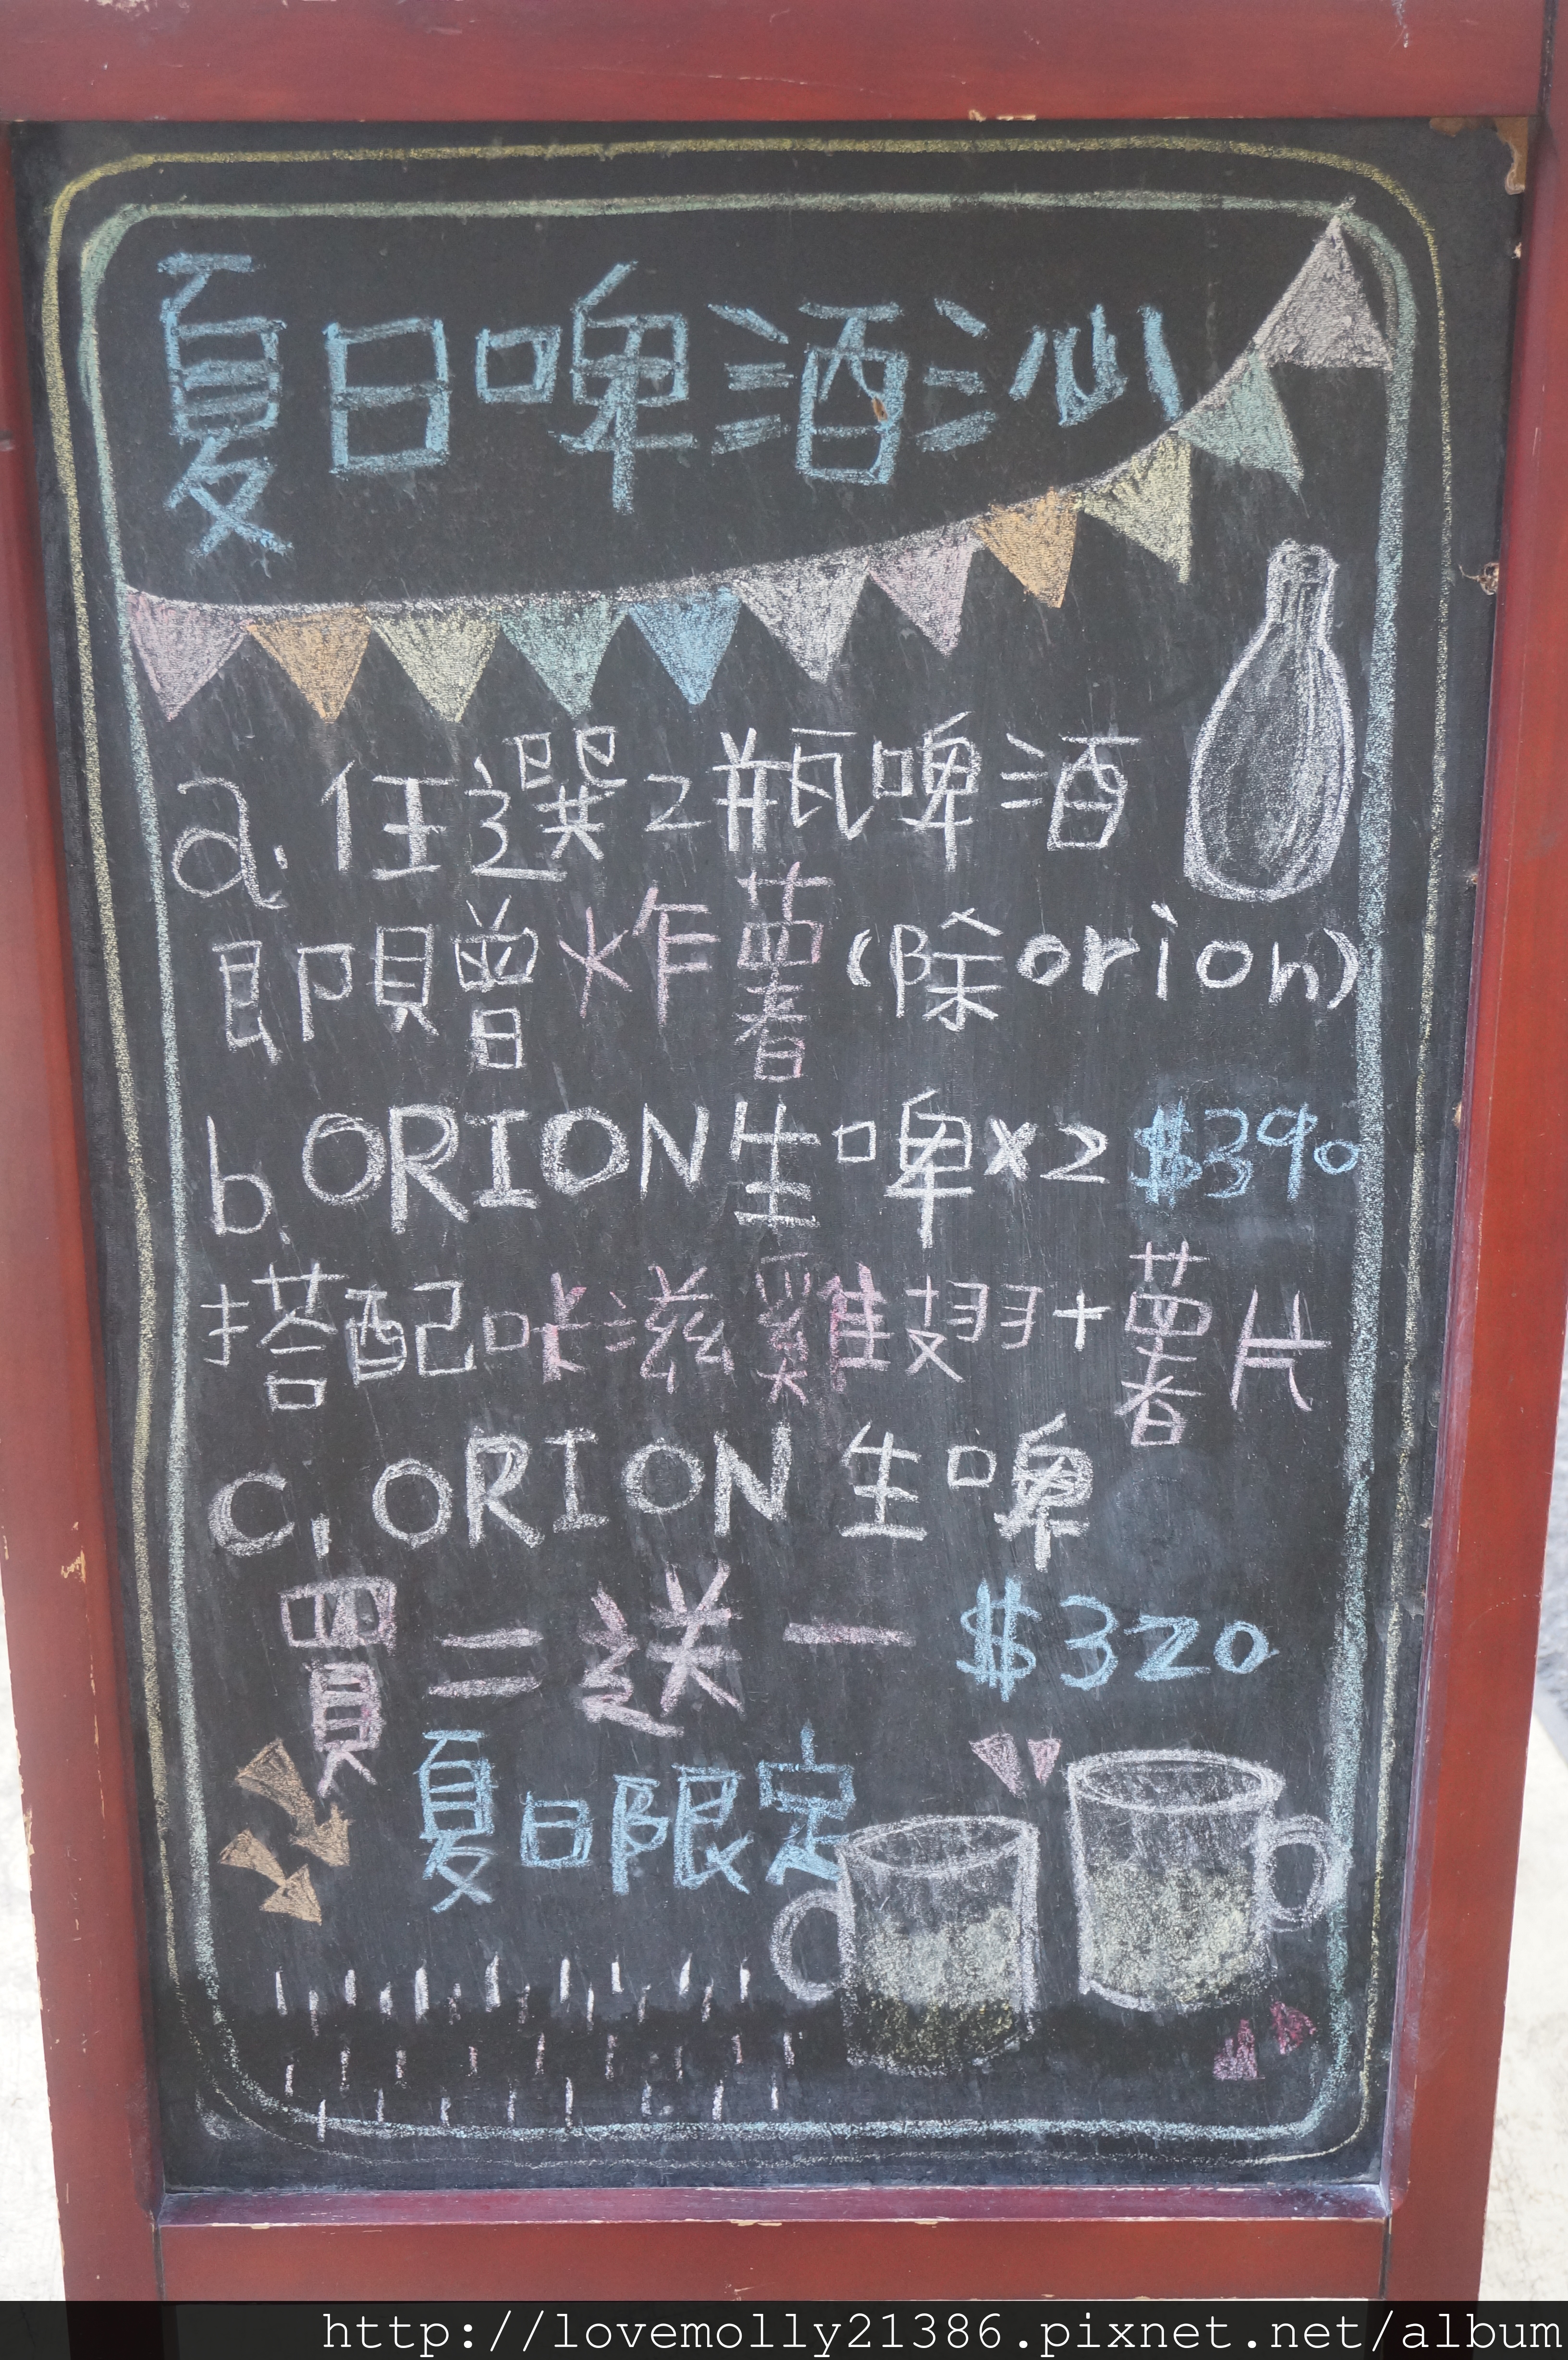 夏日啤酒沁
a. 任選2瓶啤酒
即贈炸薯(除orion)
b. ORION生啤x2 $390
搭配咔滋雞翅+薯片
c. ORION 生啤
買二送一 $320
夏日限定
http://lovemolly21386.pixnet.net/album